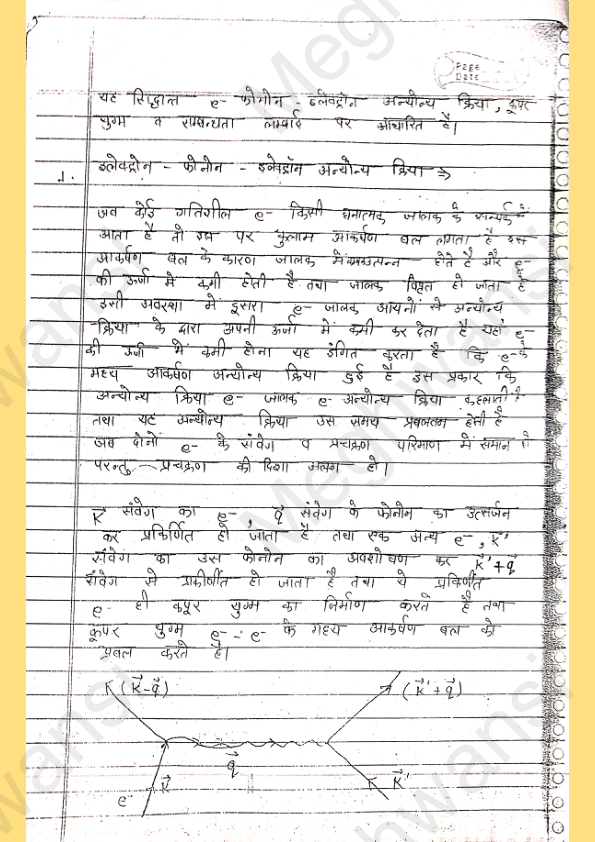 Page
Date
यह सिद्धान्त e⁻ फोनोन - इलेक्ट्रोन अन्योन्य क्रिया, कूपर
युग्म व सम्बन्धता लम्बाई पर आधारित है।
1. इलेक्ट्रोन - फोनोन - इलेक्ट्रॉन अन्योन्य क्रिया ⇒
जब कोई गतिशील e⁻ किसी धनात्मक जालक के सम्पर्क में
आता है तो इस पर कुलाम आकर्षण बल लगता है इस
आकर्षण बल के कारण जालक में उत्पन्न होते है और e⁻
की ऊर्जा में कमी होती है तथा जालक विकृत हो जाता है
इसी अवस्था में दूसरा e⁻ जालक आयनों से अन्योन्य
क्रिया के द्वारा अपनी ऊर्जा में कमी कर देता है यहां e⁻
की ऊर्जा में कमी होना यह इंगित करता है कि e⁻ के
मध्य आकर्षण अन्योन्य क्रिया हुई है इस प्रकार कि
अन्योन्य क्रिया e⁻ जालक e⁻ अन्योन्य क्रिया कहलाती है
तथा यह अन्योन्य क्रिया उस समय प्रबलतम होती है
जब दोनों e⁻ के संवेग व प्रचक्रण परिमाण में समान हो
परन्तु प्रचक्रण की दिशा अलग हो।
K⃗ संवेग का e⁻, q⃗ संवेग के फोनोन का उत्सर्जन
कर प्रकिर्णित हो जाता है तथा एक अन्य e⁻, K⃗'
संवेग का उस फोनोन का अवशोषण कर K⃗'+q⃗
संवेग से प्रकीर्णित हो जाता है तथा ये प्रकिर्णित
e⁻ ही कपूर युग्म का निर्माण करते है तथा
कूपर युग्म e⁻ - e⁻ के मध्य आकर्षण बल को
प्रबल करते है।
(K⃗-q⃗) (K⃗'+q⃗)
q⃗
e⁻ K⃗ K⃗'
Meghwansi